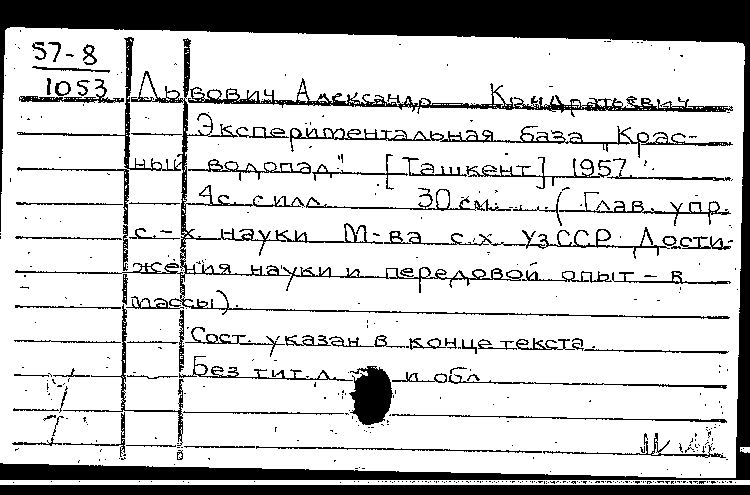 57-8
1053
Львович, Александр Кондратьевич
Экспериментальная база „Крас-
ный водопад". [Ташкент], 1957.
4с. с илл. 30 см. (Глав. упр.
с.-х. науки М-ва с.х. УзССР. Дости-
жения науки и передовой опыт - в
массы).
Сост. указан в конце текста.
Без тит. л. и обл.